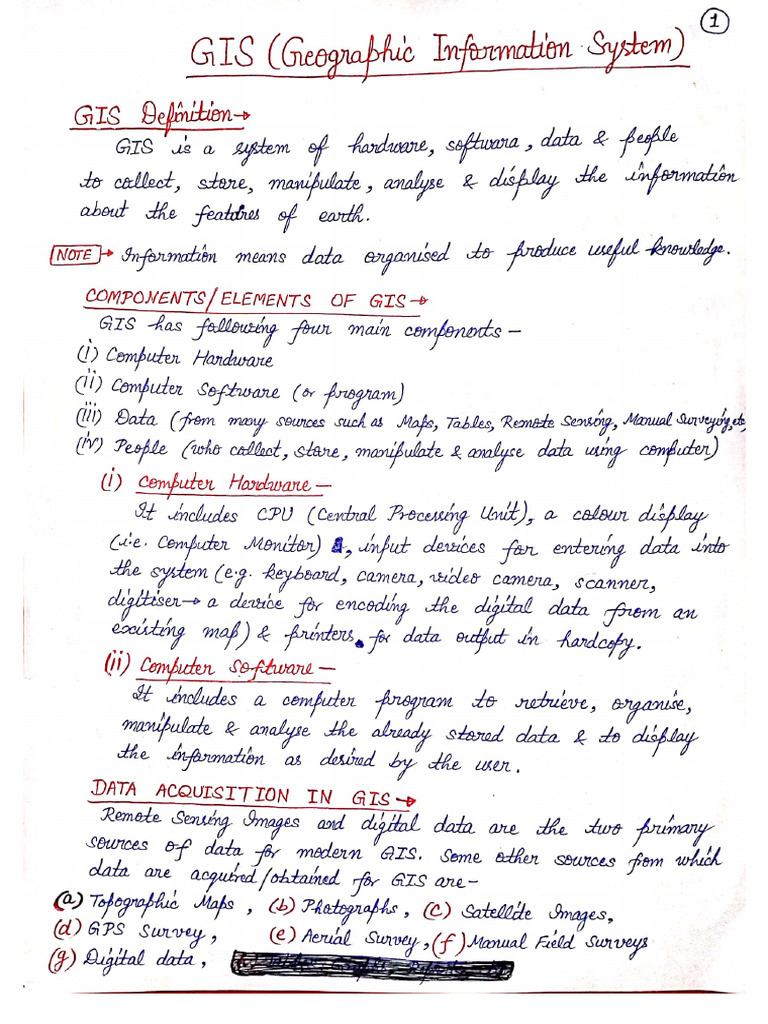 1
GIS (Geographic Information System)
GIS Definition→
GIS is a system of hardware, softwara, data & people
to collect, store, manipulate, analyse & display the information
about the features of earth.
NOTE → Information means data organised to produce useful knowledge.
COMPONENTS/ELEMENTS OF GIS→
GIS has following four main components –
(i) Computer Hardware
(ii) Computer Software (or program)
(iii) Data (from many sources such as Maps, Tables, Remote Sensing, Manual Surveying, etc)
(iv) People (who collect, store, manipulate & analyse data using computer)
(i) Computer Hardware –
It includes CPU (Central Processing Unit), a colour display
(i.e. Computer Monitor), input devices for entering data into
the system (e.g. keyboard, camera, video camera, scanner,
digitiser → a device for encoding the digital data from an
existing map) & printers for data output in hardcopy.
(ii) Computer Software –
It includes a computer program to retrieve, organise,
manipulate & analyse the already stored data & to display
the information as desired by the user.
DATA ACQUISITION IN GIS→
Remote Sensing Images and digital data are the two primary
sources of data for modern GIS. Some other sources from which
data are acquired/obtained for GIS are–
(a) Topographic Maps, (b) Photographs, (c) Satellite Images,
(d) GPS Survey, (e) Aerial Survey, (f) Manual Field Surveys
(g) Digital data,